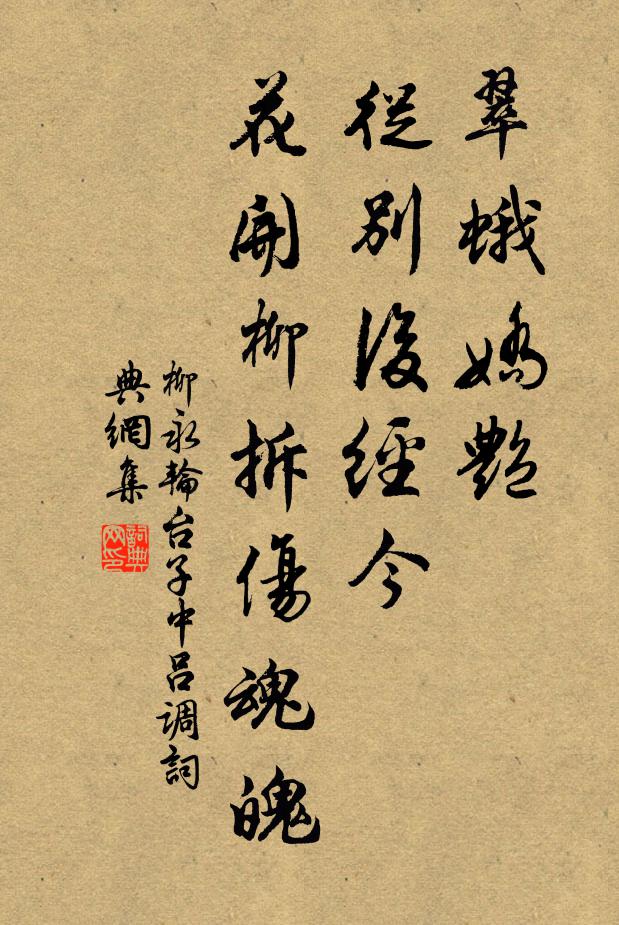 翠蛾嬌艷
從別後經今
花開柳拆傷魂魄
柳永輪台子中呂调詞
典網集
詞典
网印